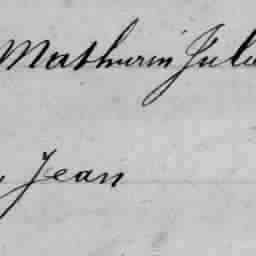 Mathurin Jule
, Jean